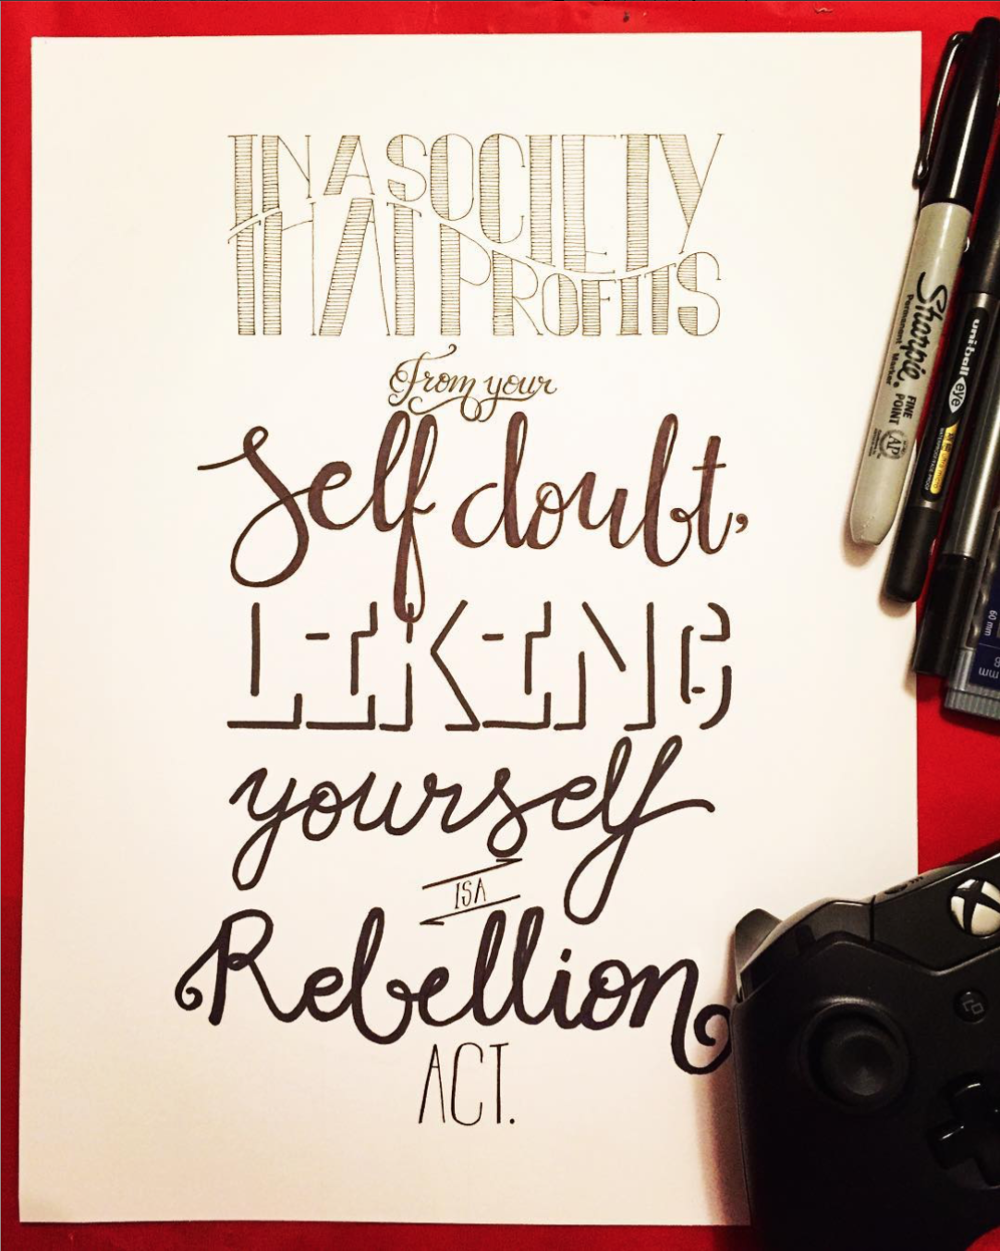 IN A SOCIETY
THAT PROFITS
From your
Self doubt,
LIKING
yourself
IS A
Rebellion
ACT.
Sharpie
Permanent Marker
FINE
POINT
AP
uni-ball eye
60 mm
mm